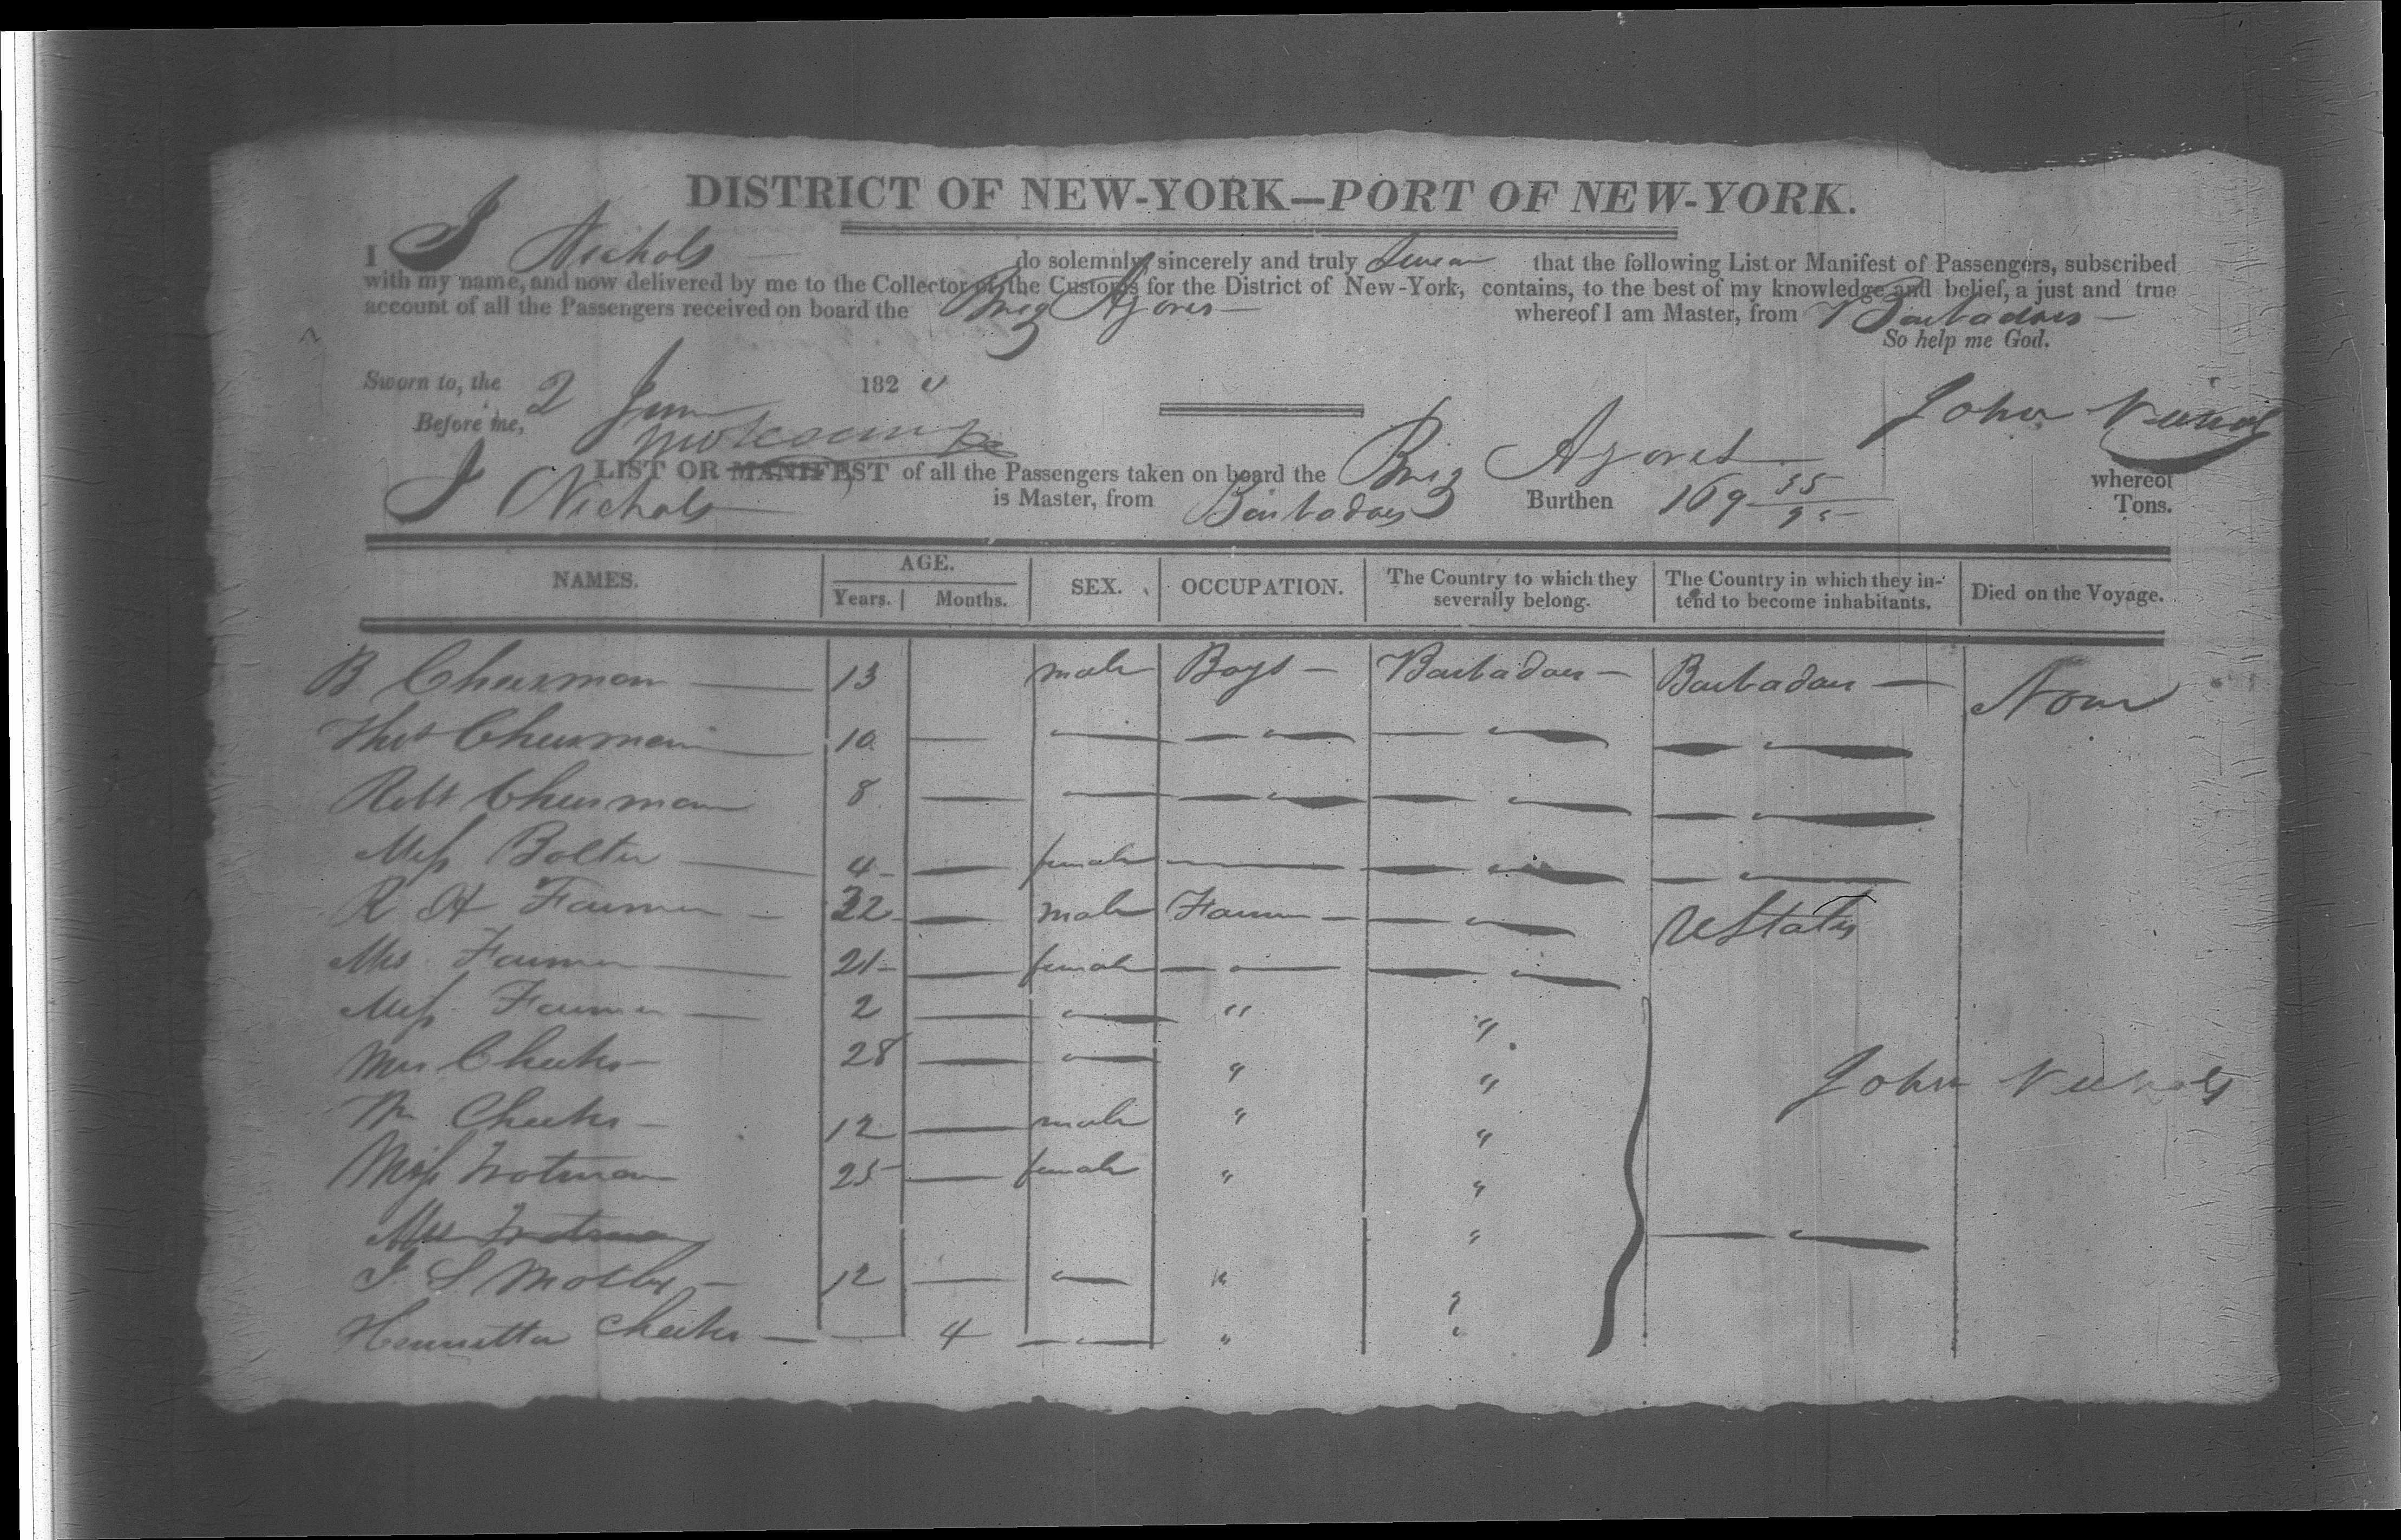 DISTRICT OF NEW-YORK—PORT OF NEW-YORK.
I J Nichols do solemnly, sincerely and truly swear that the following List or Manifest of Passengers, subscribed
with my name, and now delivered by me to the Collector of the Customs for the District of New-York, contains, to the best of my knowledge and belief, a just and true
account of all the Passengers received on board the Brig Azores whereof I am Master, from Barbadoes
So help me God.
Sworn to, the 2 June 182
Before me,
John Nichols
LIST OR MANIFEST of all the Passengers taken on board the Brig Azores whereof
J Nichols is Master, from Barbadoes Burthen 169 35/95 Tons.
NAMES. AGE. Years. Months. SEX. OCCUPATION. The Country to which they severally belong. The Country in which they intend to become inhabitants. Died on the Voyage.
B Cheesman — 13 male Boys — Barbadoes — Barbadoes — None
Thos Cheesman — 10 — — — — —
Robt Cheesman 8 — — — — —
Miss Bolter — 4 — female — — —
R H Farmer — 32 — male Farmer — — U States
Mrs Farmer — 21 — female — —
Miss Farmer — 2 — — " "
Mrs Cheeks — 28 — — " "
Wm Cheeks — 12 — male " "
Miss Trotman 25 — female " "
Mrs Trotman " —
J S Motley — 12 — — " "
Henrietta Cheeks — — 4 — " "
John Nichols